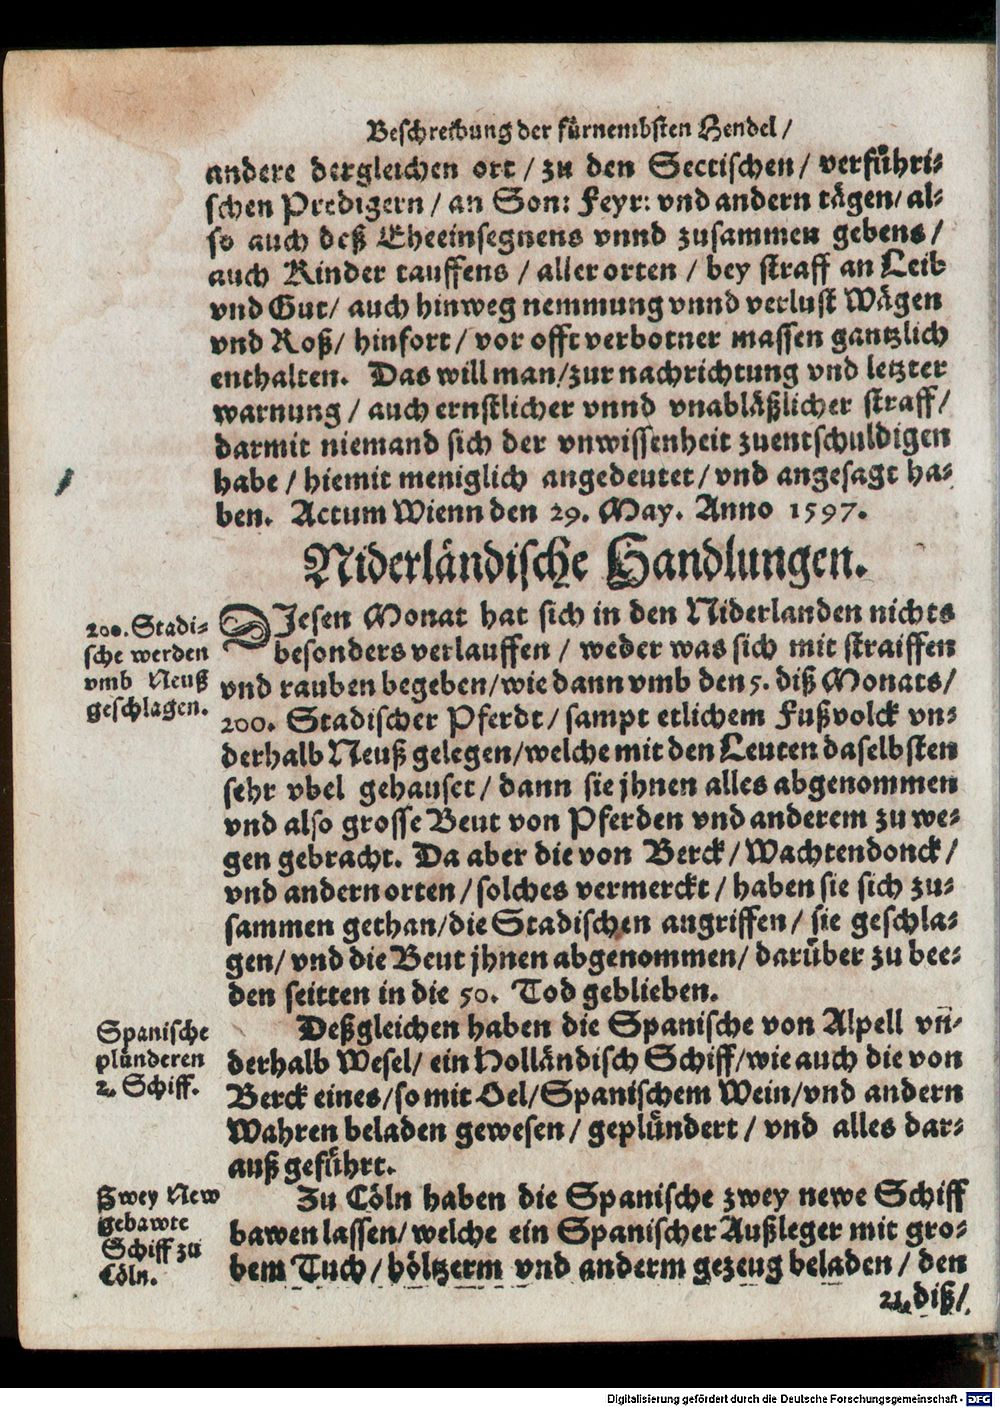 Beschreibung der fürnembsten Hendel /
andere dergleichen ort / zu den Sectischen / verführi-
schen Predigern / an Son: Feyr: vnd andern tägen / al-
so auch deß Eheeinsegnens vnnd zusammen gebens /
auch Kinder tauffens / aller orten / bey straff an Leib
vnd Gut / auch hinweg nemmung vnnd verlust Wägen
vnd Roß / hinfort / vor offt verbotner massen gantzlich
enthalten. Das will man / zur nachrichtung vnd letzter
warnung / auch ernstlicher vnnd vnabläßlicher straff /
darmit niemand sich der vnwissenheit zuentschuldigen
habe / hiemit meniglich angedeutet / vnd angesagt ha-
ben. Actum Wienn den 29. May. Anno 1597.
Niderländische Handlungen.
200. Stadi-
sche werden
vmb Neuß
geschlagen.
DIesen Monat hat sich in den Niderlanden nichts
besonders verlauffen / weder was sich mit straiffen
vnd rauben begeben / wie dann vmb den 5. diß Monats /
200. Stadischer Pferdt / sampt etlichem Fußvolck vn-
derhalb Neuß gelegen / welche mit den Leuten daselbsten
sehr vbel gehauset / dann sie jhnen alles abgenommen
vnd also grosse Beut von Pferden vnd anderem zu we-
gen gebracht. Da aber die von Berck / Wachtendonck /
vnd andern orten / solches vermerckt / haben sie sich zu-
sammen gethan / die Stadischen angriffen / sie geschla-
gen / vnd die Beut jhnen abgenommen / darüber zu bee-
den seitten in die 50. Tod geblieben.
Spanische
plünderen
2. Schiff.
Deßgleichen haben die Spanische von Alpell vñ-
derhalb Wesel / ein Holländisch Schiff / wie auch die von
Berck eines / so mit Oel / Spanischem Wein / vnd andern
Wahren beladen gewesen / geplündert / vnd alles dar-
auß geführt.
Zwey New
gebawte
Schiff zu
Cöln.
Zu Cöln haben die Spanische zwey newe Schiff
bawen lassen / welche ein Spanischer Außleger mit gro-
bem Tuch / höltzerm vnd anderm gezeug beladen / den
21. diß /
Digitalisierung gefördert durch die Deutsche Forschungsgemeinschaft - DFG